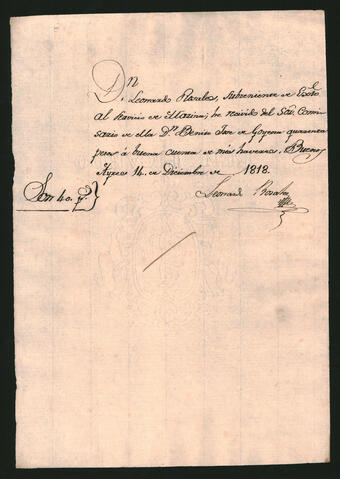 Dn
Dn Leonardo Rosales, Subteniente de Exto.
al servicio de Marina; he recivido del Sōr. Comi-
sario de ella Dn. Benito Jose de Goyena quarenta
pesos á buena cuenta de mis haveres. Buenos
Ayres 14. de Diciembre de 1818.
Son 40. ps.
Leonardo Rosales